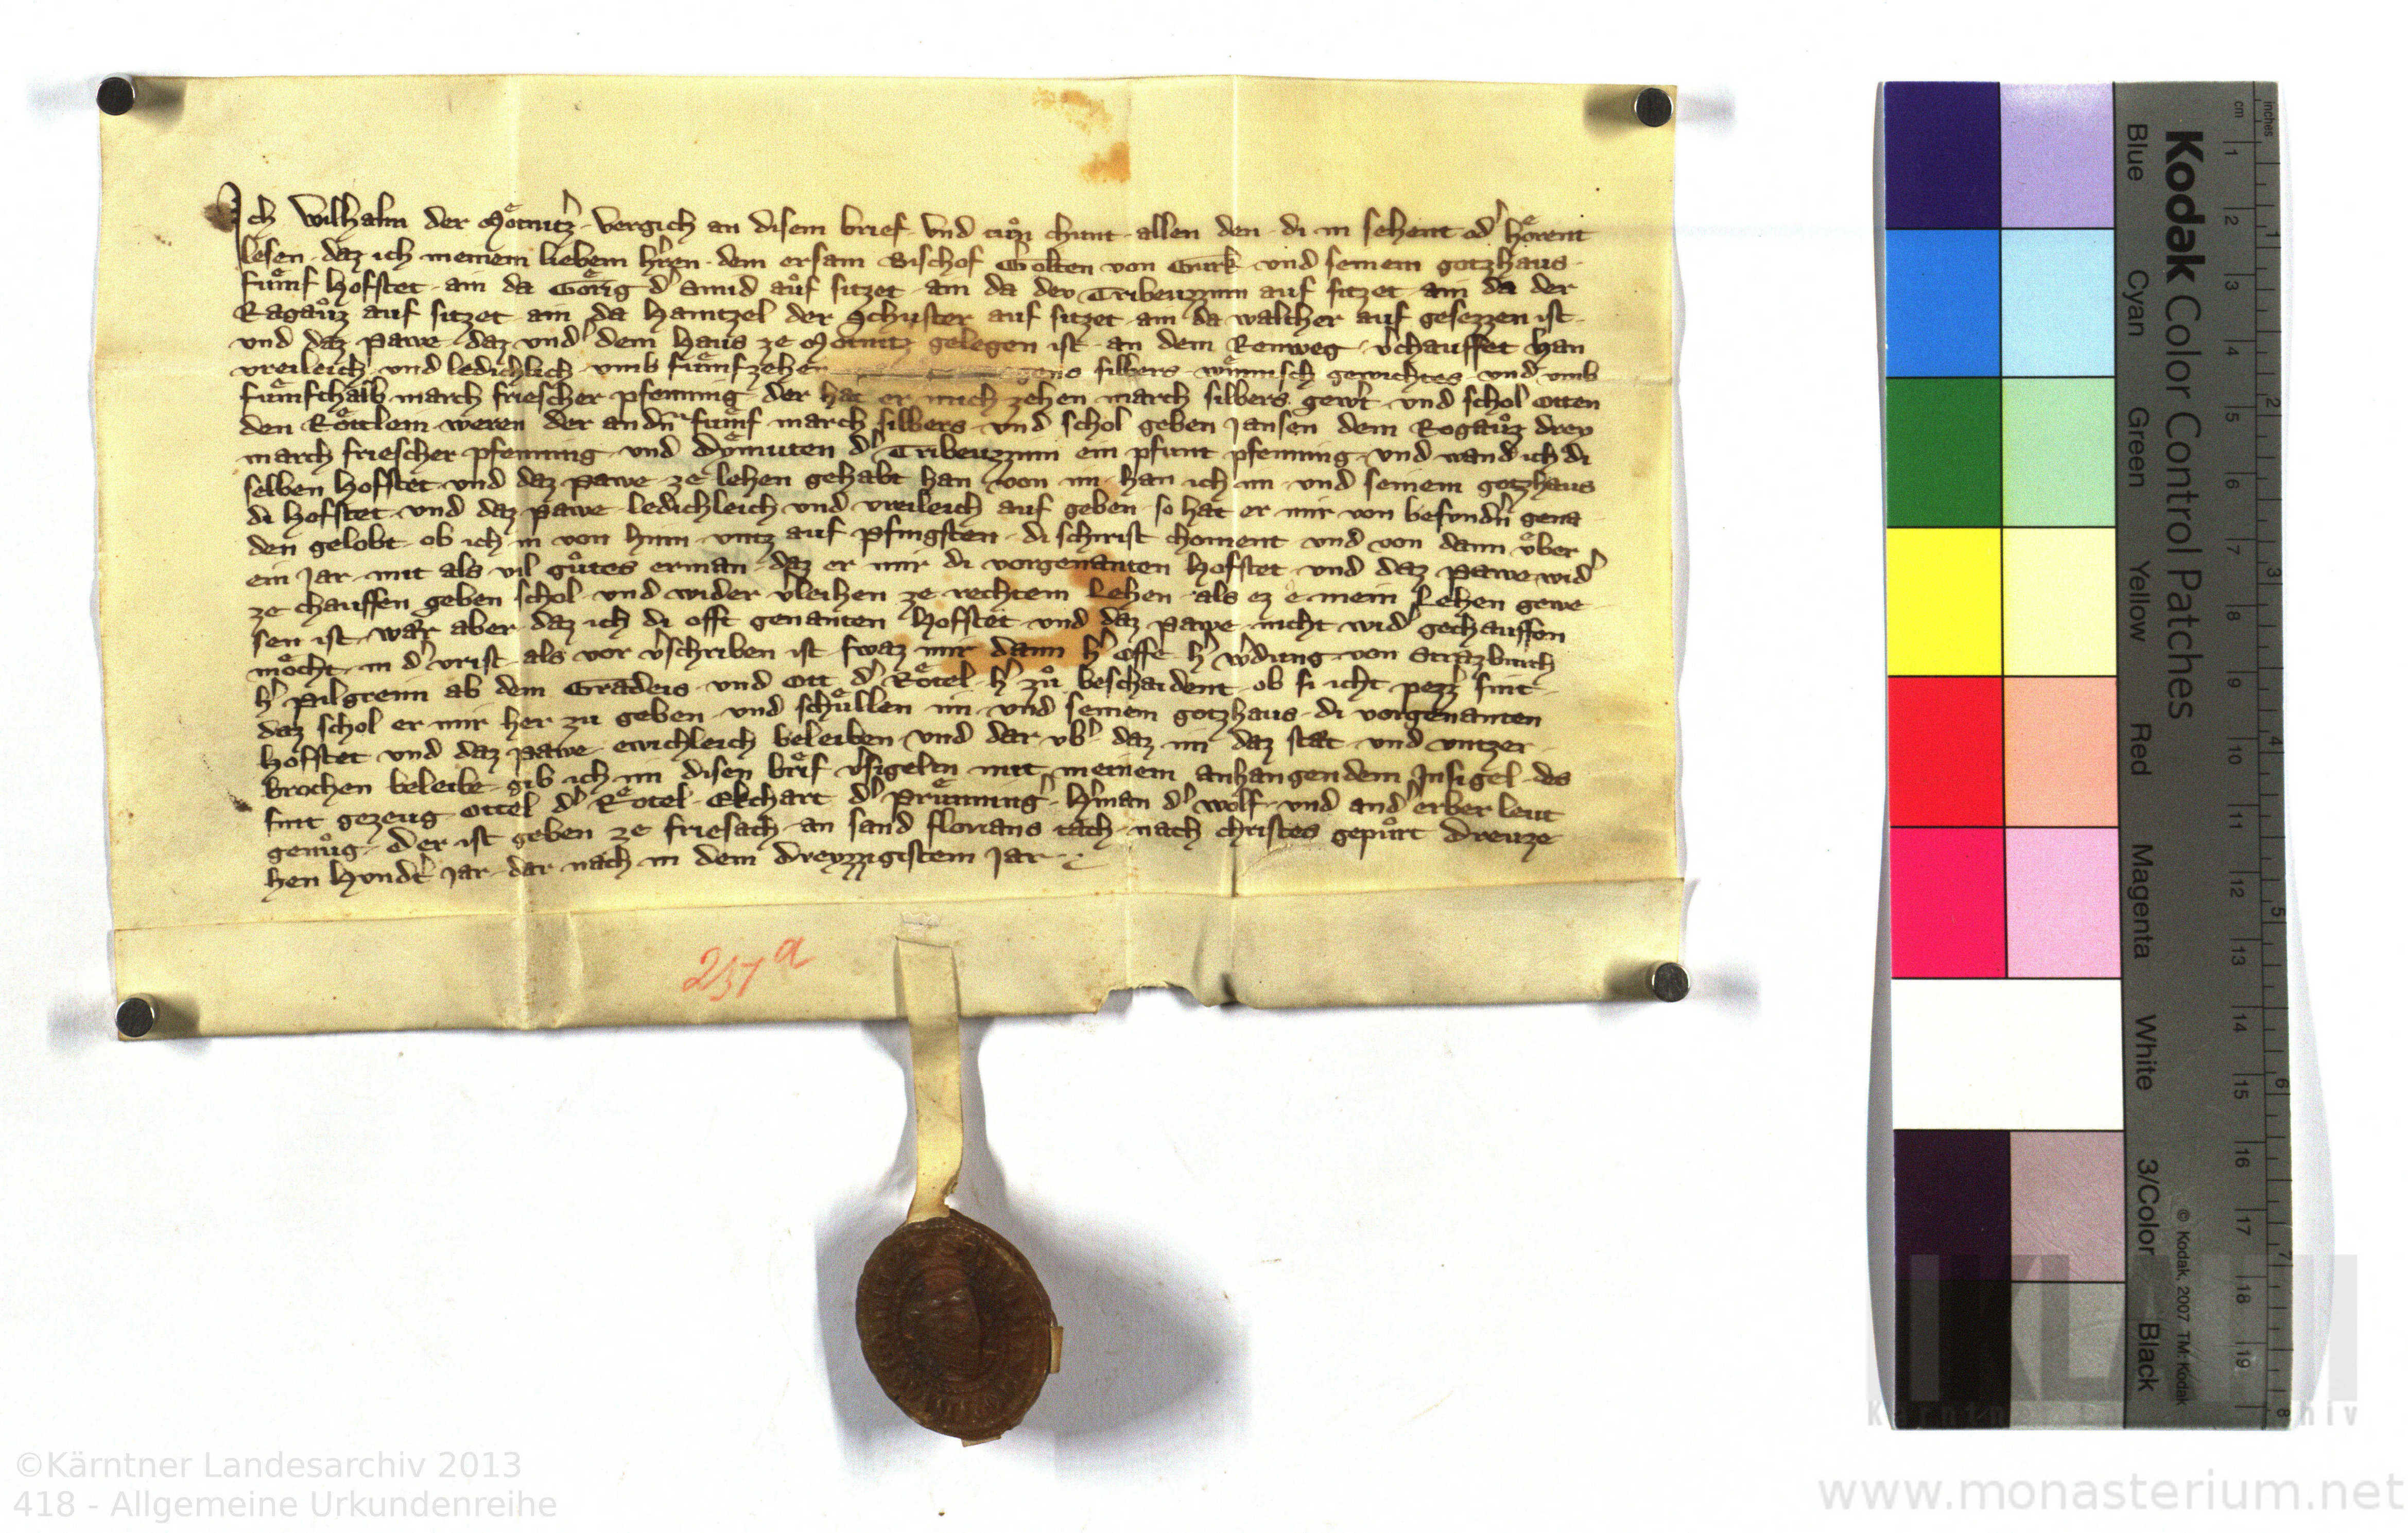 Ich Wilhalm der Motnitzʼ vergich an disem brief und tuͦn chunt allen den di in sehent odʼ hoͤrent
lesen daz ich meinem liebem hʼren dem ersam Bischof Gerolten von Gurk und seinem gotzhaus
fuͤmf hofstet ain da Goͤrig dʼ Smid auͦf sitzet ain da der Tribenzzum auf sitzet ain da der
Ragauͦz auf sitzet ain da Haintzel der Schuster auf sitzet ain da walcher auf gesezzen ist
und daz pawe daz undʼ dem haus ze Motnitz gelegen ist an dem Renweg vʼchauffet han
vreileich und ledichlich umb fuͤmfzehen silbers wiͤnnisch gewichtes und umb
fuͤmfthalb march friescher pfenning der hat er mich zehen march silbers gewʼt und schol Otten
den Roͤtlein weren der andʼn fuͤmf march silbers und schol geben Jansen dem Rogauͦz drey
march friescher pfenning und Dyͤmuten dʼ Tribenzzum ein pfunt pfenning und wand ich di
selben hofstet und daz pawe ze lehen gehabt han von im han ich im und seinem gotzhaus
di hofstet und daz pawe ledichleich und vreileich auf geben so hat er mir von besundʼn gena
den gelobt ob ich in von hinn untz auf pfingsten di schirist choment und von dann uͤber
ein Jar mit als vil guͦtes erman daz er mir di vorgenanten hofstet und daz pawe widʼ
ze chauffen geben schol und wider vʼleihen ze rechtem Lehen als ez e mein Lehen gewe
sen ist waͤr aber daz ich di offt genanten hofstet und daz pawe nicht widʼ gechauffen
moͤcht in dʼ vrist als vor vʼschriben ist swaz mir dann hʼ Offe hʼ wʼdung von Strazburch
hʼ Pilgreim ab dem Gradeis und Ott dʼ Roͤtel hʼ zuͦ beschaident ob si icht pezzʼ sint
daz schol er mir her zu geben und schuͤllen im und seinem gotzhaus di vorgenanten
hofstet und daz pawe ewichleich beleiben und dar ubʼ daz im daz stat und untzer
brochen beleibe gib ich im disen brief vʼsigelten mit meinem anhangendem Insigel des
sint gezeug Ottel dʼ Roͤtel Ekchart dʼ Pruͤnningʼ Hʼman dʼ wolf und andʼ erber leut
genuͦg der ist geben ze friesach an sand florians tach nach christes gepuͦrt dreuze
hen hundʼt Jar dar nach in dem dreyzzigistem Jar
237 a
Kodak Color Control Patches
Blue Cyan Green Yellow Red Magenta White 3/Color Black
© Kodak, 2007 TM: Kodak
inches 1 2 3 4 5 6 7 8
cm 1 2 3 4 5 6 7 8 9 10 11 12 13 14 15 16 17 18 19
©Kärntner Landesarchiv 2013
418 - Allgemeine Urkundenreihe
www.monasterium.net